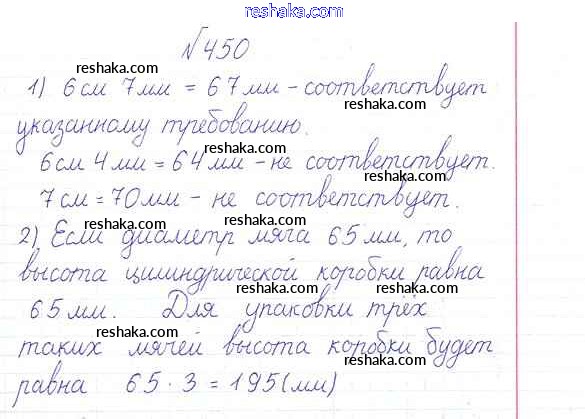 reshaka.com
№450
reshaka.com reshaka.com
1) 6 см 7 мм = 67 мм - соответствует
reshaka.com
указанному требованию.
reshaka.com
6 см 4 мм = 64 мм - не соответствует.
reshaka.com
7 см = 70 мм - не соответствует.
reshaka.com reshaka.com
2) Если диаметр мяча 65 мм, то
высота цилиндрической коробки равна
reshaka.com reshaka.com
65 мм. Для упаковки трёх
reshaka.com
таких мячей высота коробки будет
reshaka.com
равна 65 · 3 = 195 (мм)
reshaka.com